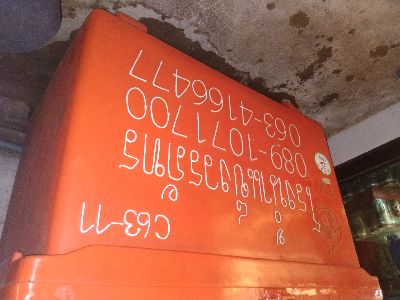 C63-11
โรงน้ำแข็งวรภัทร
089-1071700
063-4166477